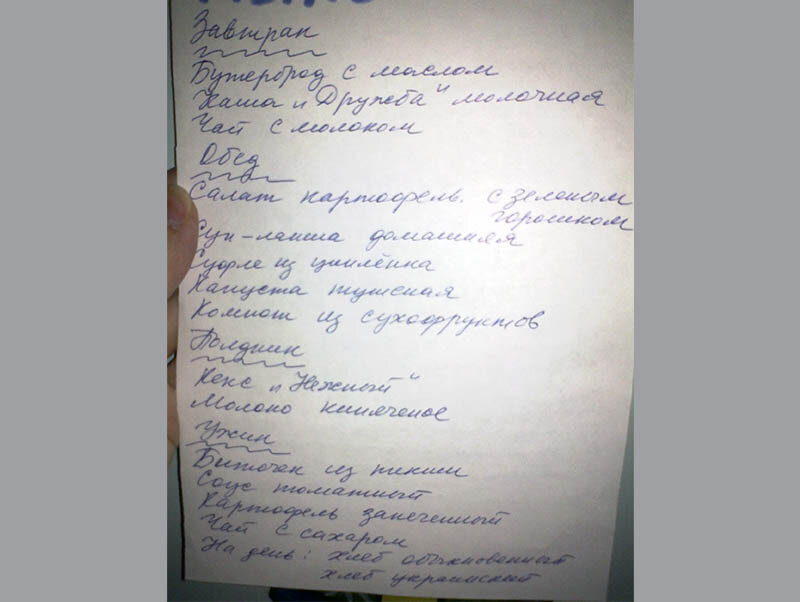 Завтрак
Бутерброд с маслом
Каша "Дружба" молочная
Чай с молоком
Обед
Салат картофель. с зеленым
горошком
Суп-лапша домашняя
Суфле из цыплёнка
Капуста тушеная
Компот из сухофруктов
Полдник
Кекс "Нежный"
Молоко кипяченое
Ужин
Биточек из пикши
Соус томатный
Картофель запеченный
Чай с сахаром
На день: хлеб обыкновенный
хлеб украинский